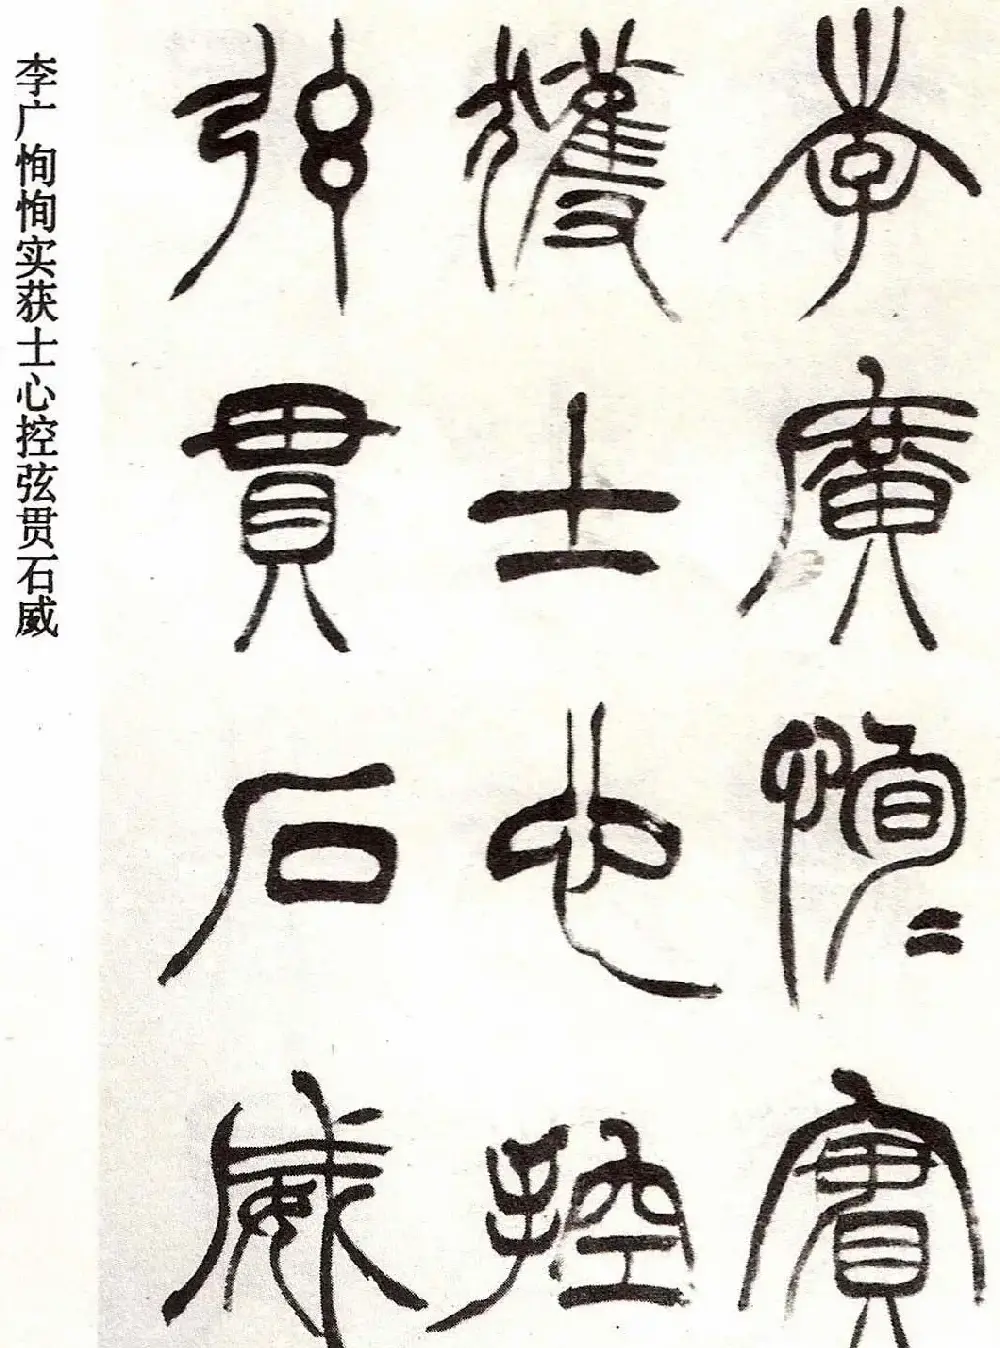 李广恂恂实获士心控弦贯石威
李廣恂〻實
獲士心控
弦貫石威